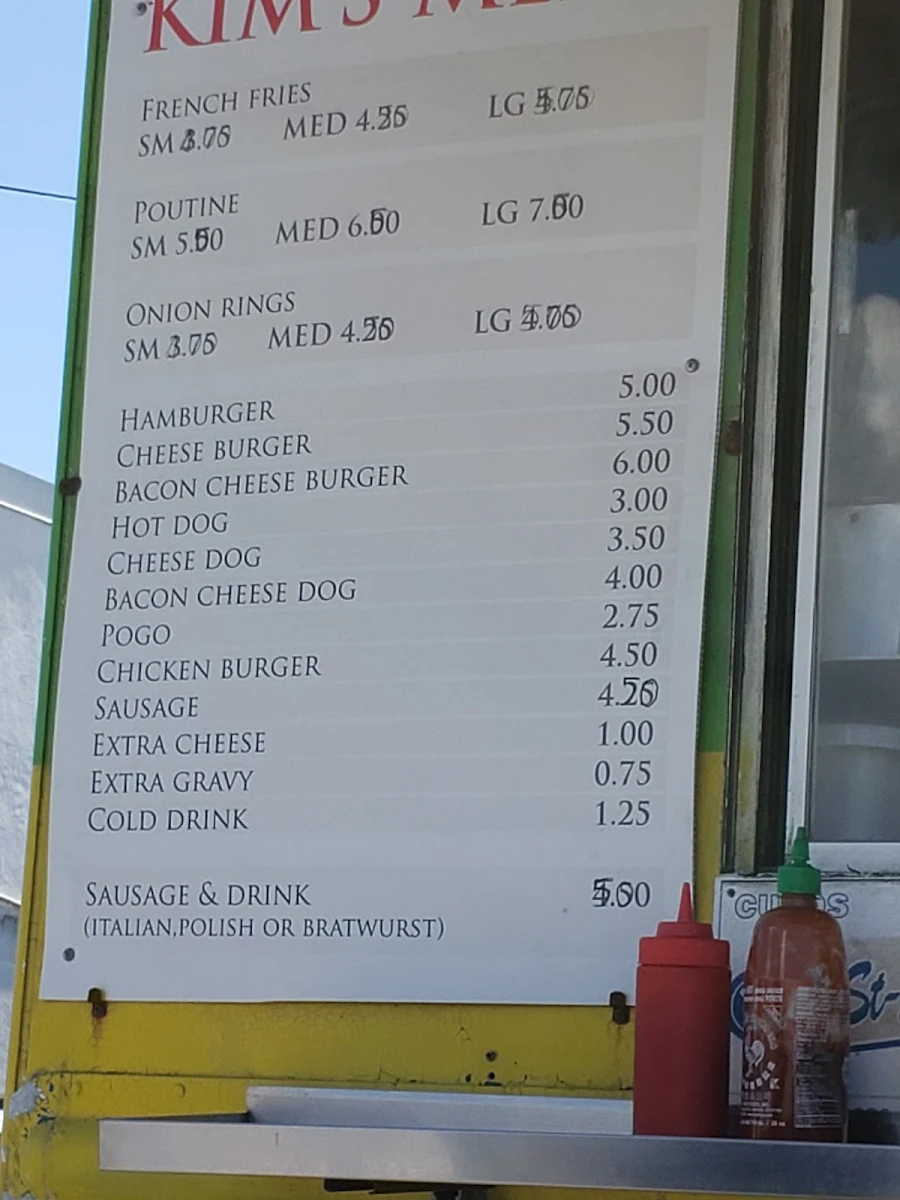 KIM'S
FRENCH FRIES
SM MED LG
POUTINE
SM 5.50 MED 6.50 LG 7.50
ONION RINGS
SM 3.75 MED LG
HAMBURGER 5.00
CHEESE BURGER 5.50
BACON CHEESE BURGER 6.00
HOT DOG 3.00
CHEESE DOG 3.50
BACON CHEESE DOG 4.00
POGO 2.75
CHICKEN BURGER 4.50
SAUSAGE
EXTRA CHEESE 1.00
EXTRA GRAVY 0.75
COLD DRINK 1.25
SAUSAGE & DRINK
(ITALIAN,POLISH OR BRATWURST)
St-